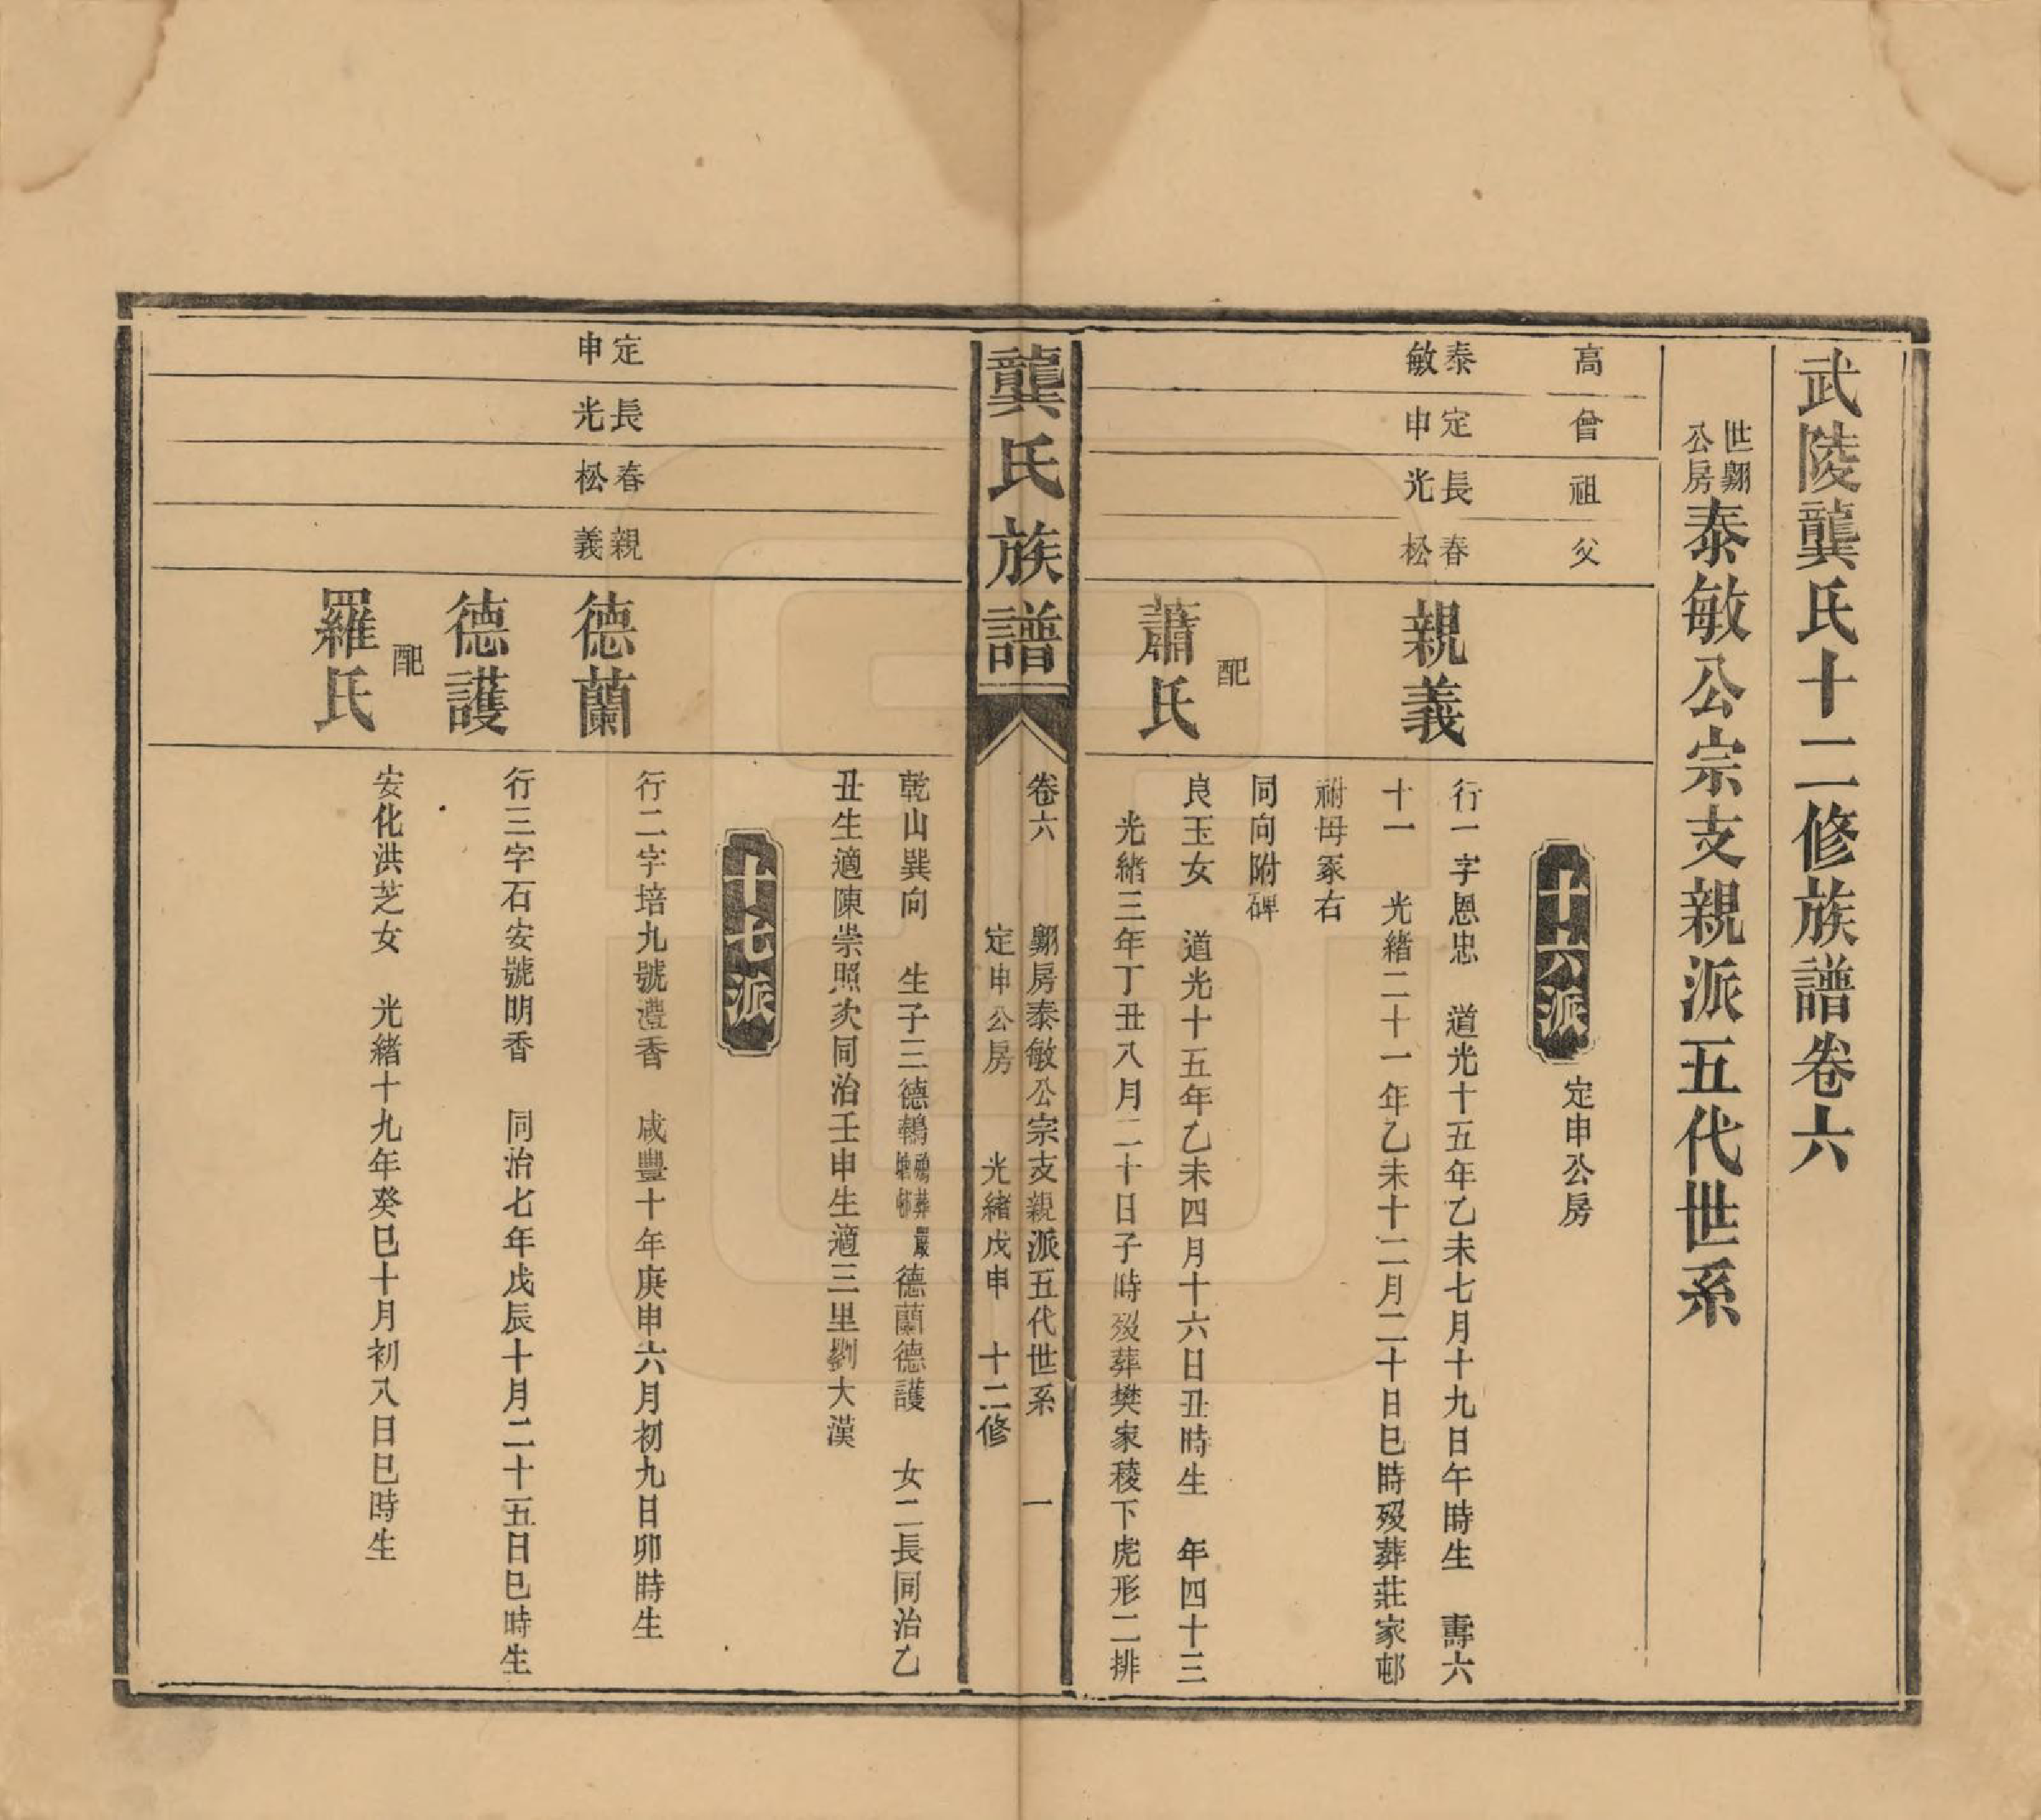 武陵龔氏十二修族譜卷六
世翾
公房
泰敏公宗支親派五代世系
高
曾
祖
父
十六派
定申公房
泰敏
定申
長光
春松
親義
行一字恩忠 道光十五年乙未七月十九日午時生 壽六
十一 光緒二十一年乙未十二月二十日巳時歿葬莊家邨
祔母冢右
配
蕭氏
同向附碑
良玉女 道光十五年乙未四月十六日丑時生 年四十三
光緒三年丁丑八月二十日子時歿葬樊家稜下虎形二排
龔氏族譜
卷六 翾房泰敏公宗支親派五代世系 一
定申公房 光緒戊申 十二修
乾山巽向 生子三德鶾殤葬
塘邨德蘭德護 女二長同治乙
丑生適陳崇照次同治壬申生適三里劉大漢
十七派
定申
長光
春松
親義
德蘭
行二字培九號澧香 咸豐十年庚申六月初九日卯時生
德護
行三字石安號明香 同治七年戊辰十月二十五日巳時生
配
羅氏
安化洪芝女 光緒十九年癸巳十月初八日巳時生